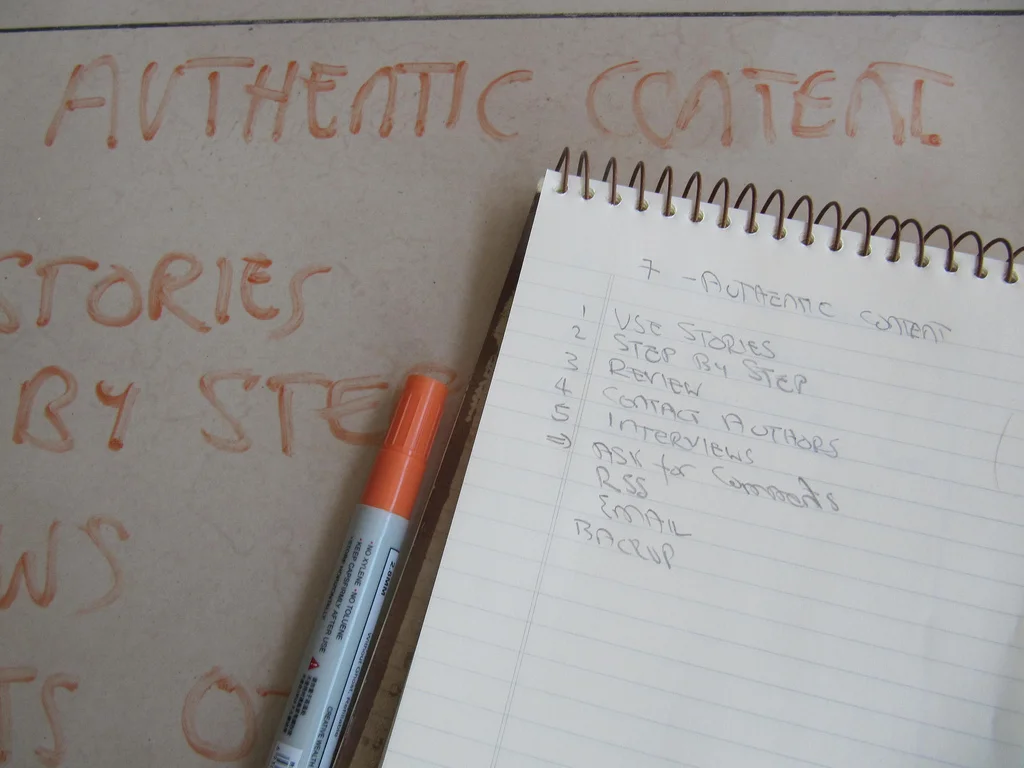 AUTHENTIC CONTENT
STORIES
BY STEP
WS
TS O
7 - AUTHENTIC CONTENT
1 USE STORIES
2 STEP BY STEP
3 REVIEW
4 CONTACT AUTHORS
5 INTERVIEWS
⇒ ASK for Comments
RSS
EMAIL
BACKUP
•NO XYLENE •NO TOLUENE
•KEEP CAP FIRMLY AFTER USE